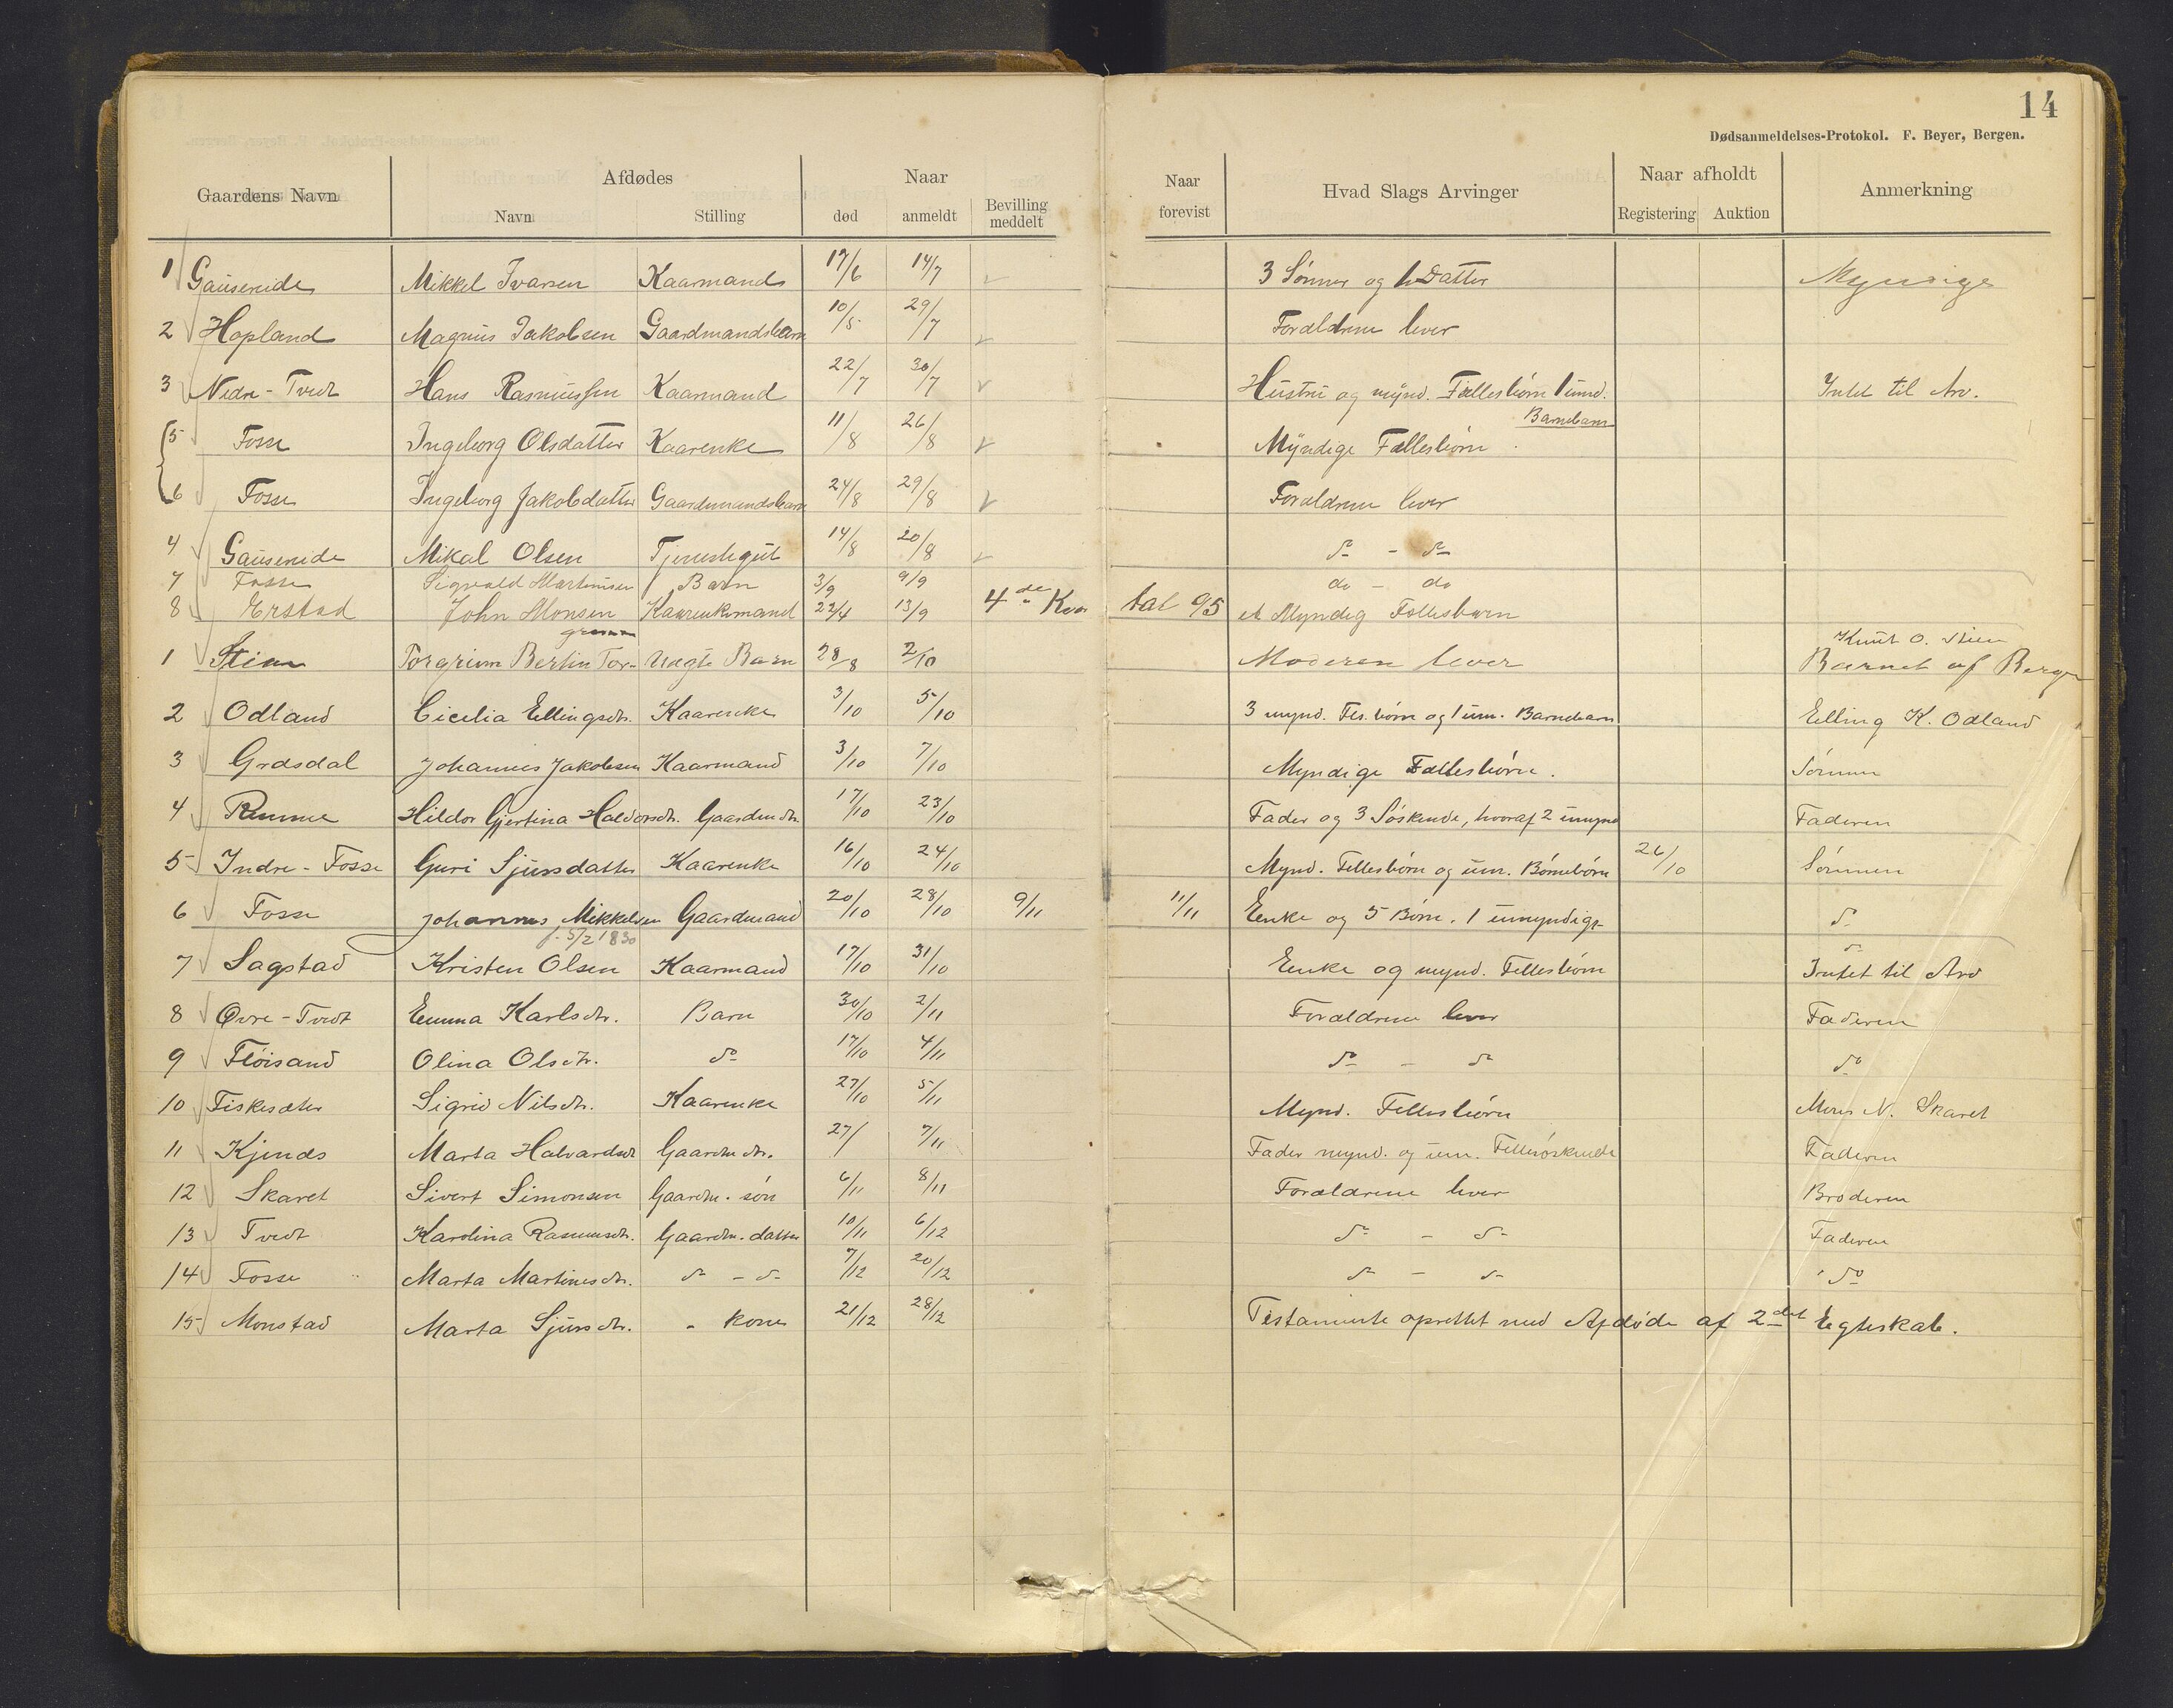 14
Dødsanmeldelses-Protokol. F. Beyer, Bergen.
Gaardens Navn Afdødes Naar Naar forevist Hvad Slags Arvinger Naar afholdt Anmerkning
Navn Stilling død anmeldt Bevilling meddelt Registering Auktion
1 Gausereide Mikkel Ivarsen Kaarmand 17/6 14/7 3 Sønner og 1 Datter Myndige
2 Hopland Magnus Jakobsen Gaardmandsbarn 10/5 29/7 Forældrene lever
3 Nedre-Tvedt Hans Rasmussen Kaarmand 22/7 30/7 Hustru og mynd. Fællesbørn 1 umd. Barnebarn Intet til Arv.
5 Fosse Ingeborg Olsdatter Kaarenke 11/8 26/8 Myndige Fællesbørn
6 Fosse Ingeborg Jakobsdatter Gaardmandsbarn 24/8 29/8 Forældrene lever
4 Gausereide Mikal Olsen Tjenestegut 14/8 20/8 do - do
7 Fosse Sigvald Martinusen Barn 3/9 9/9 do - do
8 Erstad John Monsen Kaarenkemand 22/4 13/9 et Myndig Fællesbarn
4de Kvartal 95
1 Stien Torgrim Bertin Torgrimsen Uægte Barn 28/8 2/10 Moderen lever Knut O. Stien Barnet af Bergen
2 Odland Cicilia Ellingsdtr. Kaarenke 3/10 5/10 3 mynd. Fes. børn og 1 um. Barnebarn Elling K. Odland
3 Grasdal Johannes Jakobsen Kaarmand 3/10 7/10 Myndige Fællesbørn. Sønnen
4 Remme Hildor Gjertina Haldorsdr. Gaardmdr. 17/10 23/10 Fader og 3 Søskende, hvoraf 2 umynd Faderen
5 Indre-Fosse Guri Sjursdatter Kaarenke 16/10 24/10 Mynd. Fellesbørn og um. Børnebørn 26/10 Sønnen
6 Fosse Johannes Mikkelsen Gaardmand 20/10 28/10 9/11 11/11 Enke og 5 Børn. 1 umyndige do
f. 5/2 1830
7 Sagstad Kristen Olsen Kaarmand 17/10 31/10 Enke og mynd. Fellesbørn do Intet til Arv
8 Øvre-Tvedt Emma Karlsdtr. Barn 30/10 2/11 Forældrene lever Faderen
9 Fløisand Olina Olsdtr. do 17/10 4/11 do - do do
10 Fiskesæter Sigrid Nilsdtr. Kaarenke 27/10 5/11 Mynd. Fellesbørn Mons N. Skaret
11 Kjenes Marta Halvardsdr Gaardmdtr. 27/ 7/11 Fader mynd. og um. Fellesøskende Faderen
12 Skaret Sivert Simonsen Gaardm. søn 6/11 8/11 Forældrene lever Broderen
13 Tvedt Karolina Rasmusdtr. Gaardm. datter 10/11 6/12 do - do Faderen
14 Fosse Marta Martinesdtr. do - do 7/12 20/12 do - do do
15 Monstad Marta Sjursdtr. " kone 21/12 28/12 Testamente oprettet med Afdøde af 2det Egteskab.